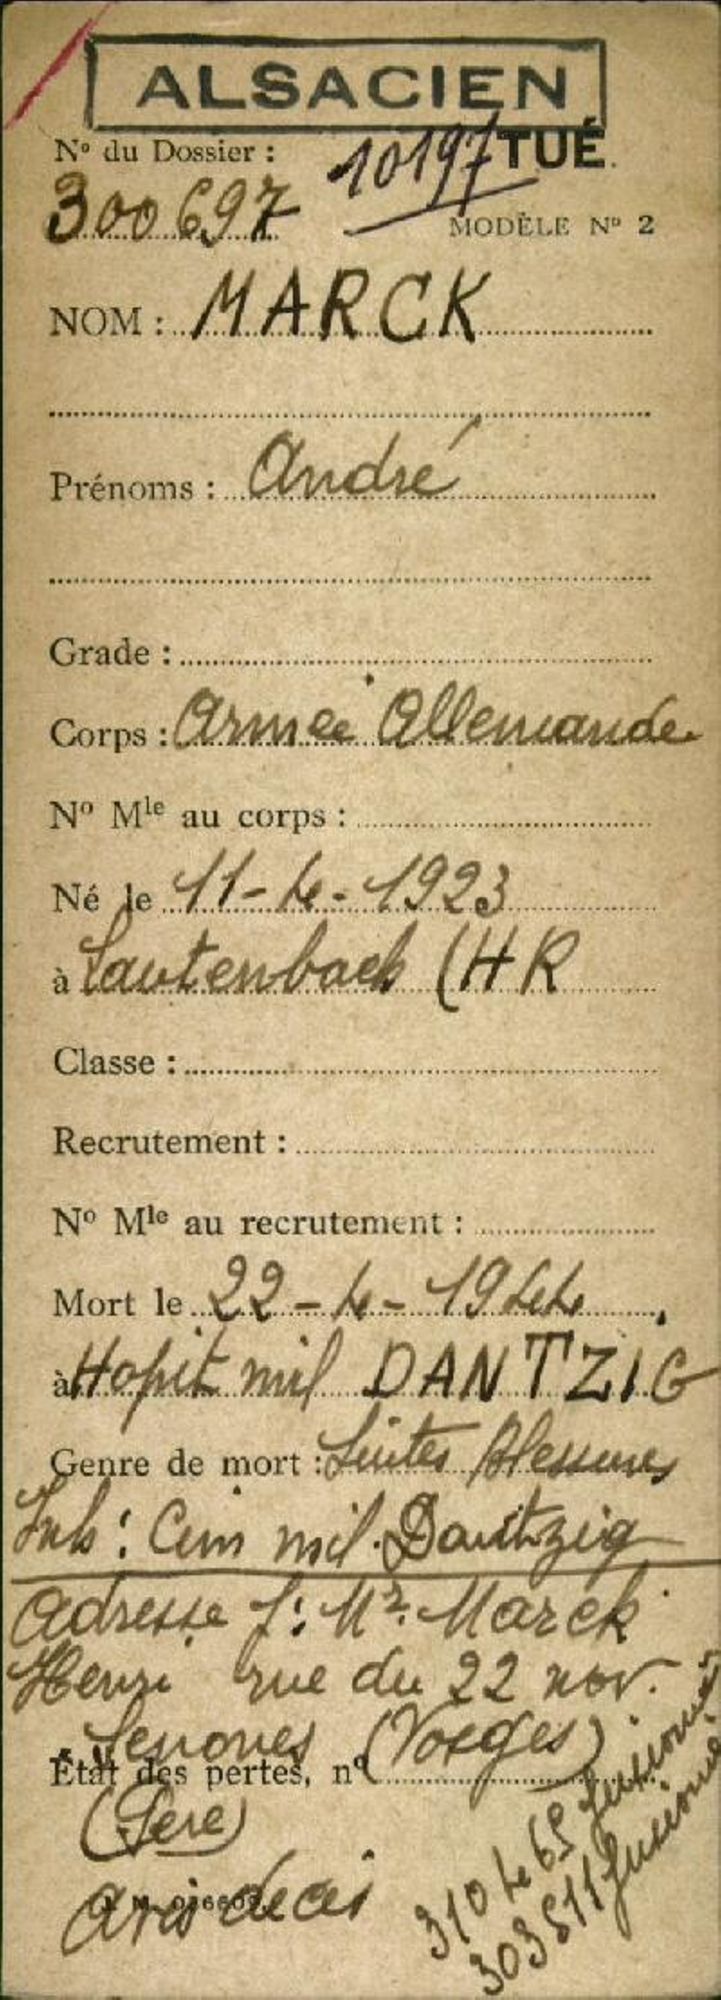 ALSACIEN
N° du Dossier : 10197 TUÉ.
300697
MODÈLE N° 2
NOM : MARCK
Prénoms : André
Grade :
Corps : Armée Allemande
N° Mle au corps :
Né le 11-4-1923
à Lautenbach (HR
Classe :
Recrutement :
N° Mle au recrutement :
Mort le 22-4-1944
à Hopit mil DANTZIG
Genre de mort : Suites Blessures
Inh : Cim mil. Dantzig
Adresse f : Mr. Marck
Henri rue du 22 nov.
Senones (Vosges)
État des pertes, n°
(Père)
Avis décès
310465 fusionné
303811 fusionné